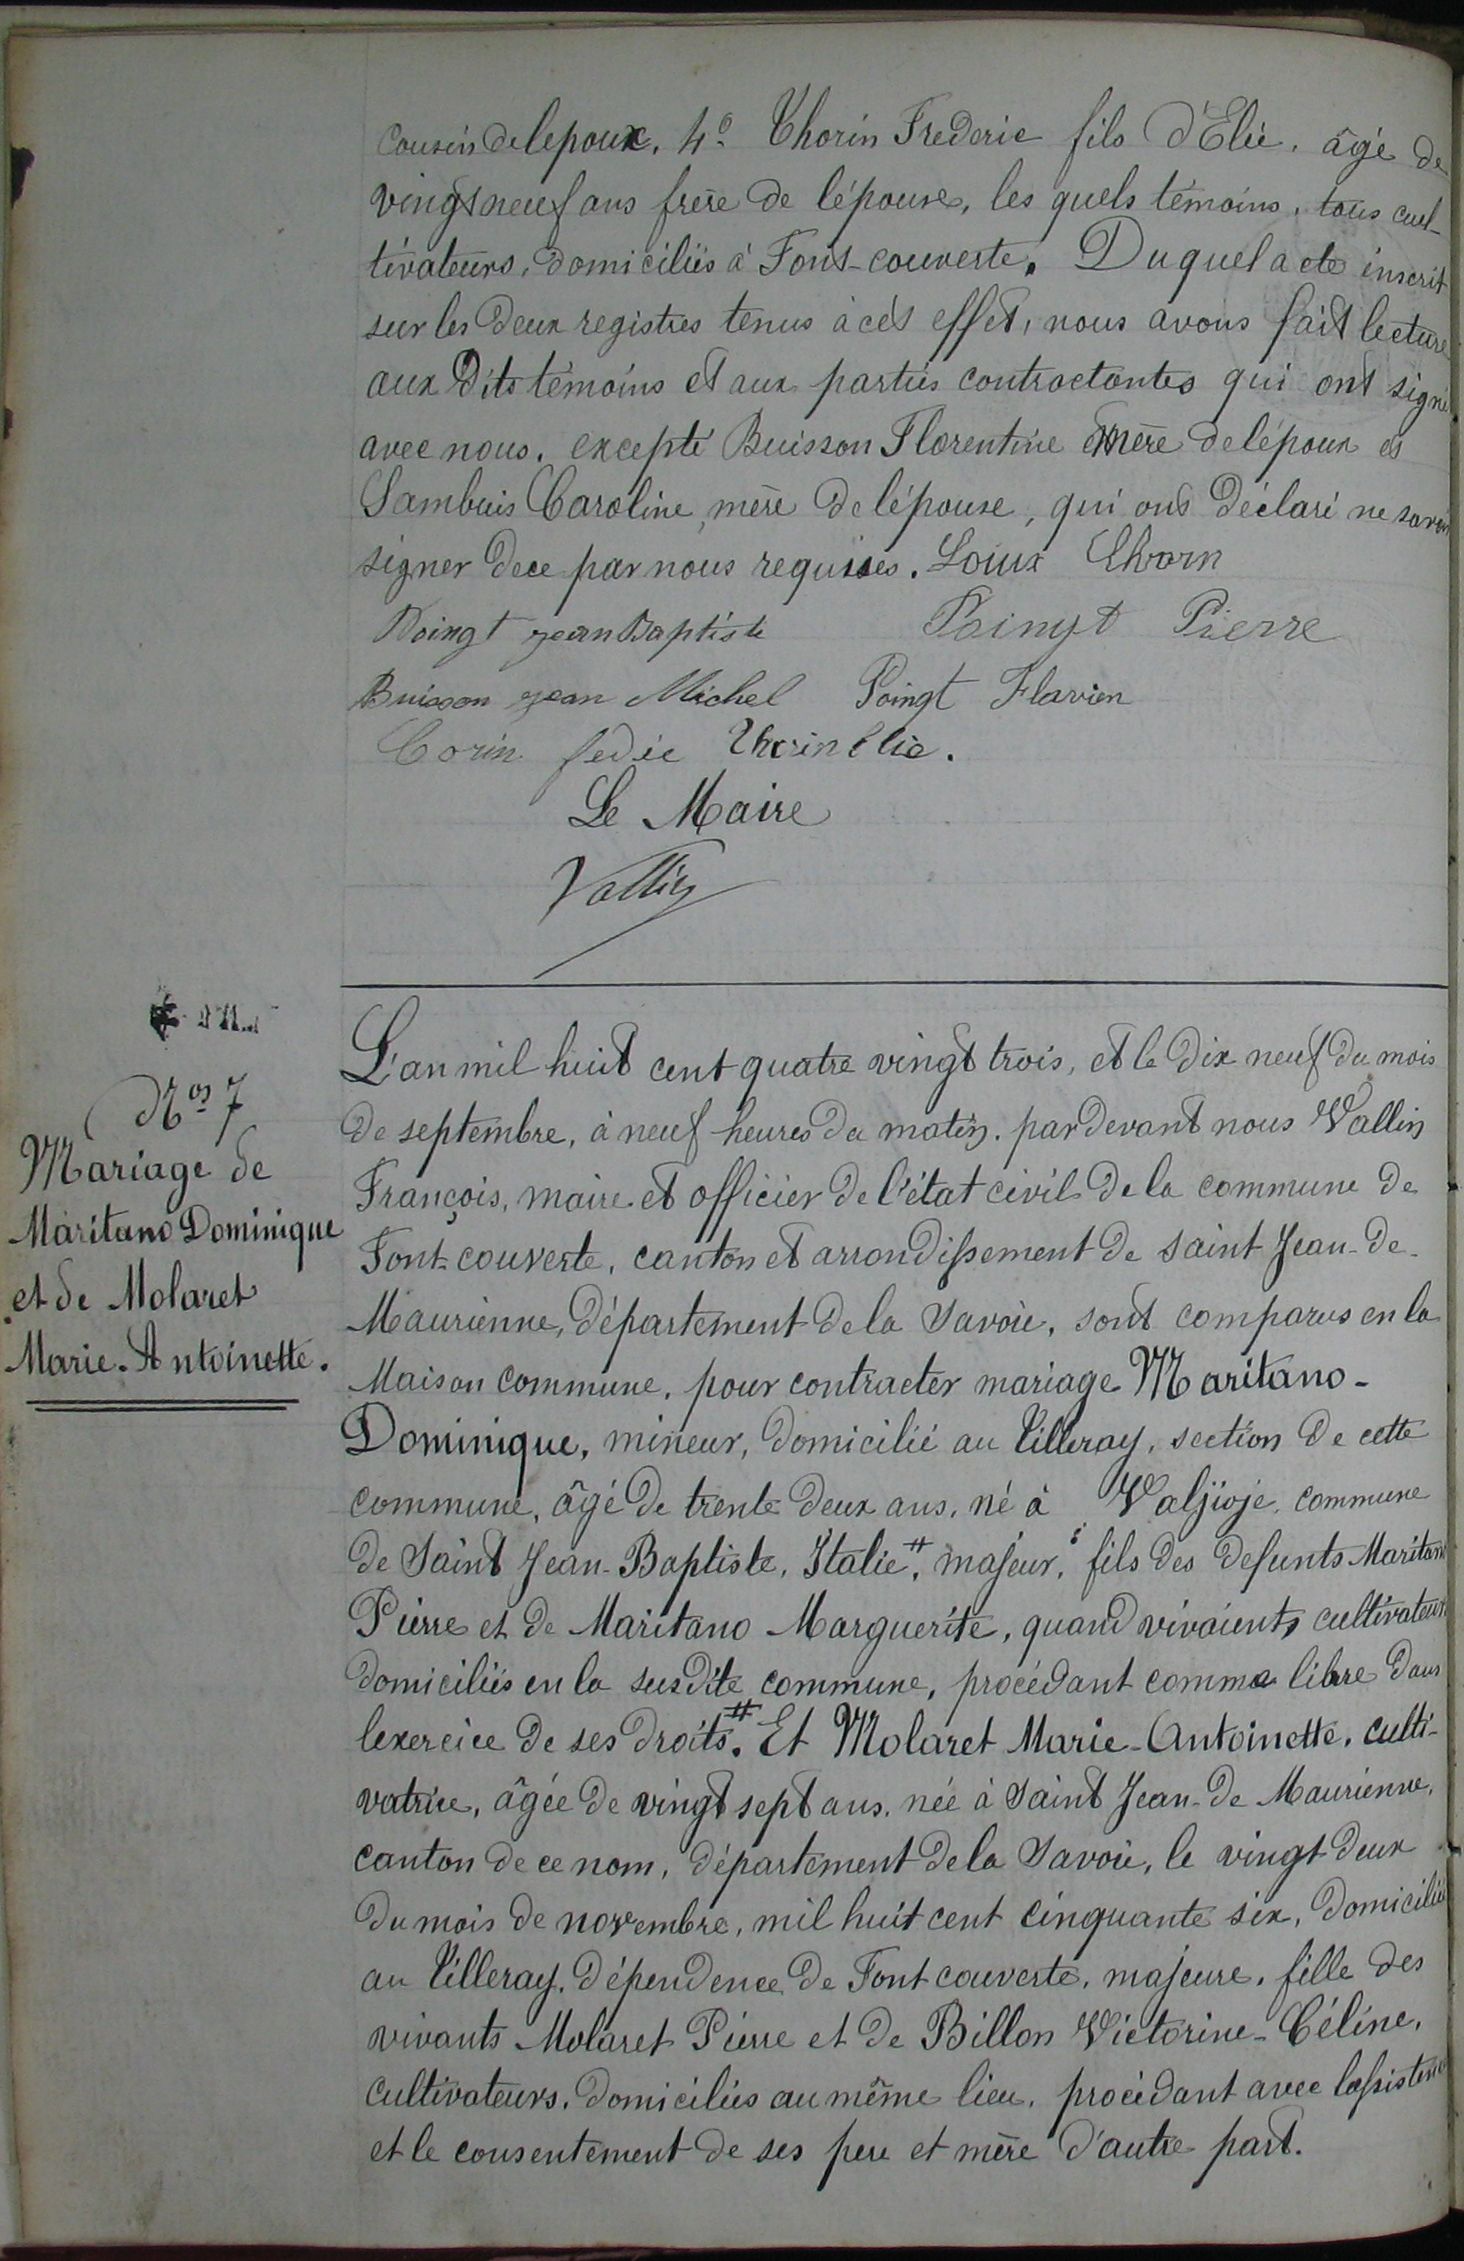 Cousin de lepoux. 4º Thorin Frederic fils d'Elie, âgé de
vingt neuf ans frère de lépouse, les quels témoins, tous cul-
tivateurs, domiciliés à Font-couverte. Duquel acte inscrit
sur les deux registres tenus à cet effet, nous avons fait lecture
aux dits témoins et aux parties contractantes qui ont signé
avec nous. excepté Buisson Florentine mère de lépoux et
Sambuis Caroline, mère de lépouse, qui ont déclaré ne savoir
signer de ce par nous requises. Louix Thorin
Poingt jean Baptiste Poingt Pierre
Buisson jean Michel Poingt Flavien
Corin fedic Thorin Elie.
Le Maire
Vallin
Nos 7
Mariage de
Maritano Dominique
et de Molaret
Marie-Antoinette.
L'an mil huit cent quatre vingt trois, et le dix neuf du mois
de septembre, à neuf heures du matin. par devant nous Vallin
François, maire et officier de l'état civil de la commune de
Font-couverte, canton et arrondissement de saint Jean-de-
Maurienne, département de la Savoie, sont comparus en la
Maison commune, pour contracter mariage Maritano-
Dominique, mineur, domicilié au Villeray, section de cette
commune, âgé de trente deux ans, né à Valjioje, commune
de Saint Jean-Baptiste, Italie #, majeur, fils des defunts Maritano
Pierre et de Maritano Marguerite, quand vivaients cultivateurs
domiciliés en la susdite commune, procédant comme libre dans
lexercice de ses droits #. Et Molaret Marie-Antoinette, culti-
vatrice, âgée de vingt sept ans, née à Saint Jean-de Maurienne,
canton de ce nom, département de la Savoie, le vingt deux
du mois de novembre, mil huit cent cinquante six, domiciliée
au Villeray, dépendence de Font couverte, majeure, fille des
vivants Molaret Pierre et de Billon Victorine-Céline,
cultivateurs, domiciliés au même lieu, procédant avec lassistence
et le consentement de ses pere et mère d'autre part.